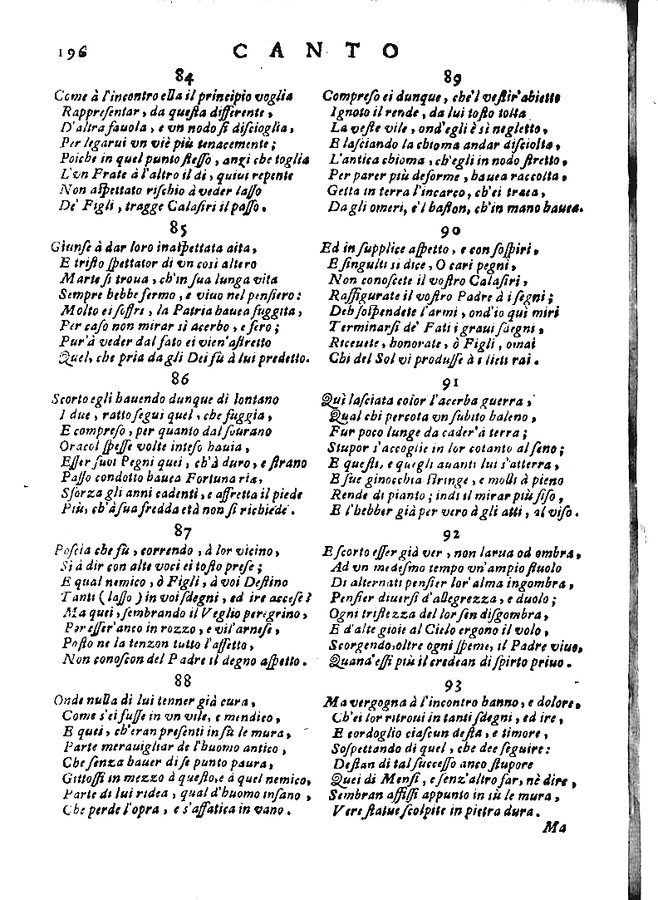 196 CANTO
84
Come à l'incontro ella il principio voglia
Rappresentar, da questa differente,
D'altra fauola, e vn nodo si discioglia,
Per legarui vn viè più tenacemente;
Poiche in quel punto stesso, anzi che toglia
L'vn Frate à l'altro il dì, quiui repente
Non aspettato rischio à veder lasso
De' Figli, tragge Calasiri il passo.
85
Giunse à dar loro inaspettata aita,
E tristo spettator di vn così altero
Marte si troua, ch'in sua lunga vita
Sempre hebbe fermo, e viuo nel pensiero:
Molto ei sofferse, la Patria hauea fuggita,
Per caso non mirar sì acerbo, e fero;
Pur'à veder dal fato ei vien'astretto
Quel, che pria da gli Dei fù à lui predetto.
86
Scorto egli hauendo dunque di lontano
I due, ratto seguì quel, che fuggia,
E compreso, per quanto dal sourano
Oracol spesse volte inteso hauia,
Esser suoi Pegni quei, ch'à duro, e strano
Passo condotto hauea Fortuna ria,
Sforza gli anni cadenti, e affretta il piede
Più, ch'à sua fredda età non si richiede.
87
Poscia che fù, correndo, à lor vicino,
Sì à dir con alte voci ei tosto prese;
E qual nemico, ò Figli, à voi Destino
Tanti (lasso) in voi sdegni, ed ire accese?
Ma quei, sembrando il Veglio peregrino,
Per esser'anco in rozzo, e vil'arnese,
Posto ne la tenzon tutto l'affetto,
Non conoscon del Padre il degno aspetto.
88
Onde nulla di lui tenner già cura,
Come s'ei fusse in vn vile, e mendico,
E quei, ch'eran presenti in sù le mura,
Parte merauigliar de l'huomo antico,
Che senza hauer di se punto paura,
Gittossi in mezzo à questo, e à quel nemico,
Parte di lui ridea, qual d'huomo insano,
Che perde l'opra, e s'affatica in vano.
89
Compreso ei dunque, che'l vestir'abietto
Ignoto il rende, da lui tosto tolta
La veste vile, ond'egli è sì negletto,
E lasciando la chioma andar disciolta,
L'antica chioma, ch'egli in nodo stretto,
Per parer più deforme, hauea raccolta,
Getta in terra l'incarco, ch'ei traea,
Da gli omeri, e'l baston, ch'in mano hauea.
90
Ed in supplice aspetto, e con sospiri,
E singulti si dice, O cari pegni,
Non conoscete il vostro Calasiri,
Raffigurate il vostro Padre à i segni;
Deh sospendete l'armi, ond'io qui miri
Terminarsi de' Fati i graui sdegni,
Riceuete, honorate, ò Figli, omai
Chi del Sol vi produsse à i lieti rai.
91
Quì lasciata color l'acerba guerra,
Qual chi percota vn subito baleno,
Fur poco lunge da cader'à terra;
Stupor s'accoglie in lor cotanto al seno;
E questi, e quegli auanti lui s'atterra,
E sue ginocchia stringe, e molli à pieno
Rende di pianto; indi il mirar più fiso,
E l'hebber già per vero à gli atti, al viso.
92
E scorto esser già ver, non larua od ombra,
Ad vn medesmo tempo vn'ampio stuolo
Di alternati pensier lor'alma ingombra,
Pensier diuersi d'allegrezza, e duolo;
Ogni tristezza del lor sen disgombra,
E d'alte gioie al Cielo ergono il volo,
Scorgendo, oltre ogni speme, il Padre viuo,
Quand'essi più il credean di spirto priuo.
93
Ma vergogna à l'incontro hanno, e dolore,
Ch'ei lor ritroui in tanti sdegni, ed ire,
E cordoglio ciascun desta, e timore,
Sospettando di quel, che dee seguire:
Destan di tal successo anco stupore
Quei di Menfi, e senz'altro far, nè dire,
Sembran affissi appunto in sù le mura,
Vere statue scolpite in pietra dura.
Ma